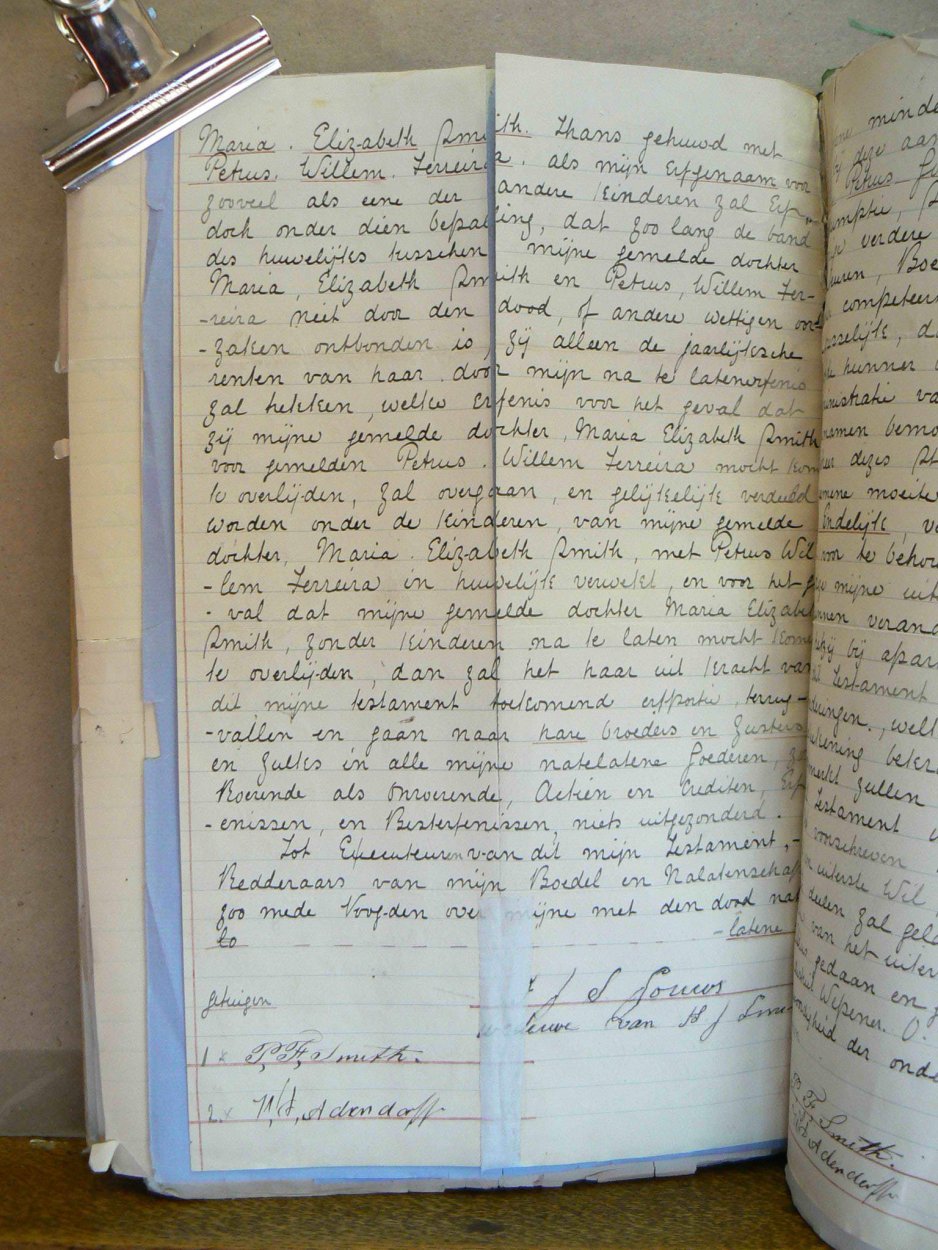 Maria. Elizabeth Smith. Thans gehuwd met
Petrus. Willem. Ferreira. als mijn Erfgenaam voor
zooveel als eene der andere Kinderen zal Erf
doch onder dien bepaling, dat zoo lang de band
des huwelijks tusschen mijne gemelde dochter
Maria, Elizabeth Smith en Petrus, Willem Fer-
-reira neit door den dood, of andere wettigen oor
-zaken ontbonden is, zij alleen de jaarlijksche
renten van haar door mijn na te laten erfenis
zal trekken, welke Erfenis voor het geval dat
zij mijne gemelde dochter, Maria Elizabeth Smith
voor gemelden Petrus. Willem Ferreira mocht kom
te overlijden, zal overgaan, en gelijkelijk verdeeld
worden onder de kinderen, van mijne gemelde
dochter, Maria. Elizabeth Smith, met Petrus Wil
-lem Ferreira in huwelijk verwekt, en voor het ge
-val dat mijne gemelde dochter Maria Elizabet
Smith, zonder kinderen na te laten mocht kome
te overlijden, dan zal het haar uit kracht van
dit mijne testament toekomend erfportie, terug-
-vallen en gaan naar hare broeders en Zusters
en zulks in alle mijne natelatene Goederen,
Roerende als Onroerende, Actien en Crediten, Erf
-enissen, en Besterfenissen, niets uitgezonderd.
Tot Executeuren van dit mijn Testament,-
Redderaars van mijn Boedel en Nalatenschap
zoo mede Voogden over mijne met den dood nat
to -latene
getuigen
x J S Gouws
weduwe van H J Smi
1 x P, F, Smith.
2. x Adendorff
minde
deze aan
Petrus
verdere
Boe
competeer
d
hunner
van
namen
dezes
moeite
Endelijk, v
voor te behou
mijne uit
veran
bij apar
Testament
well
zullen
Testament
voorschreven
uiterste Wil
zal
van het uiter
gedaan en g
Wepener. O.
der onde
F Smith.
Adendorff